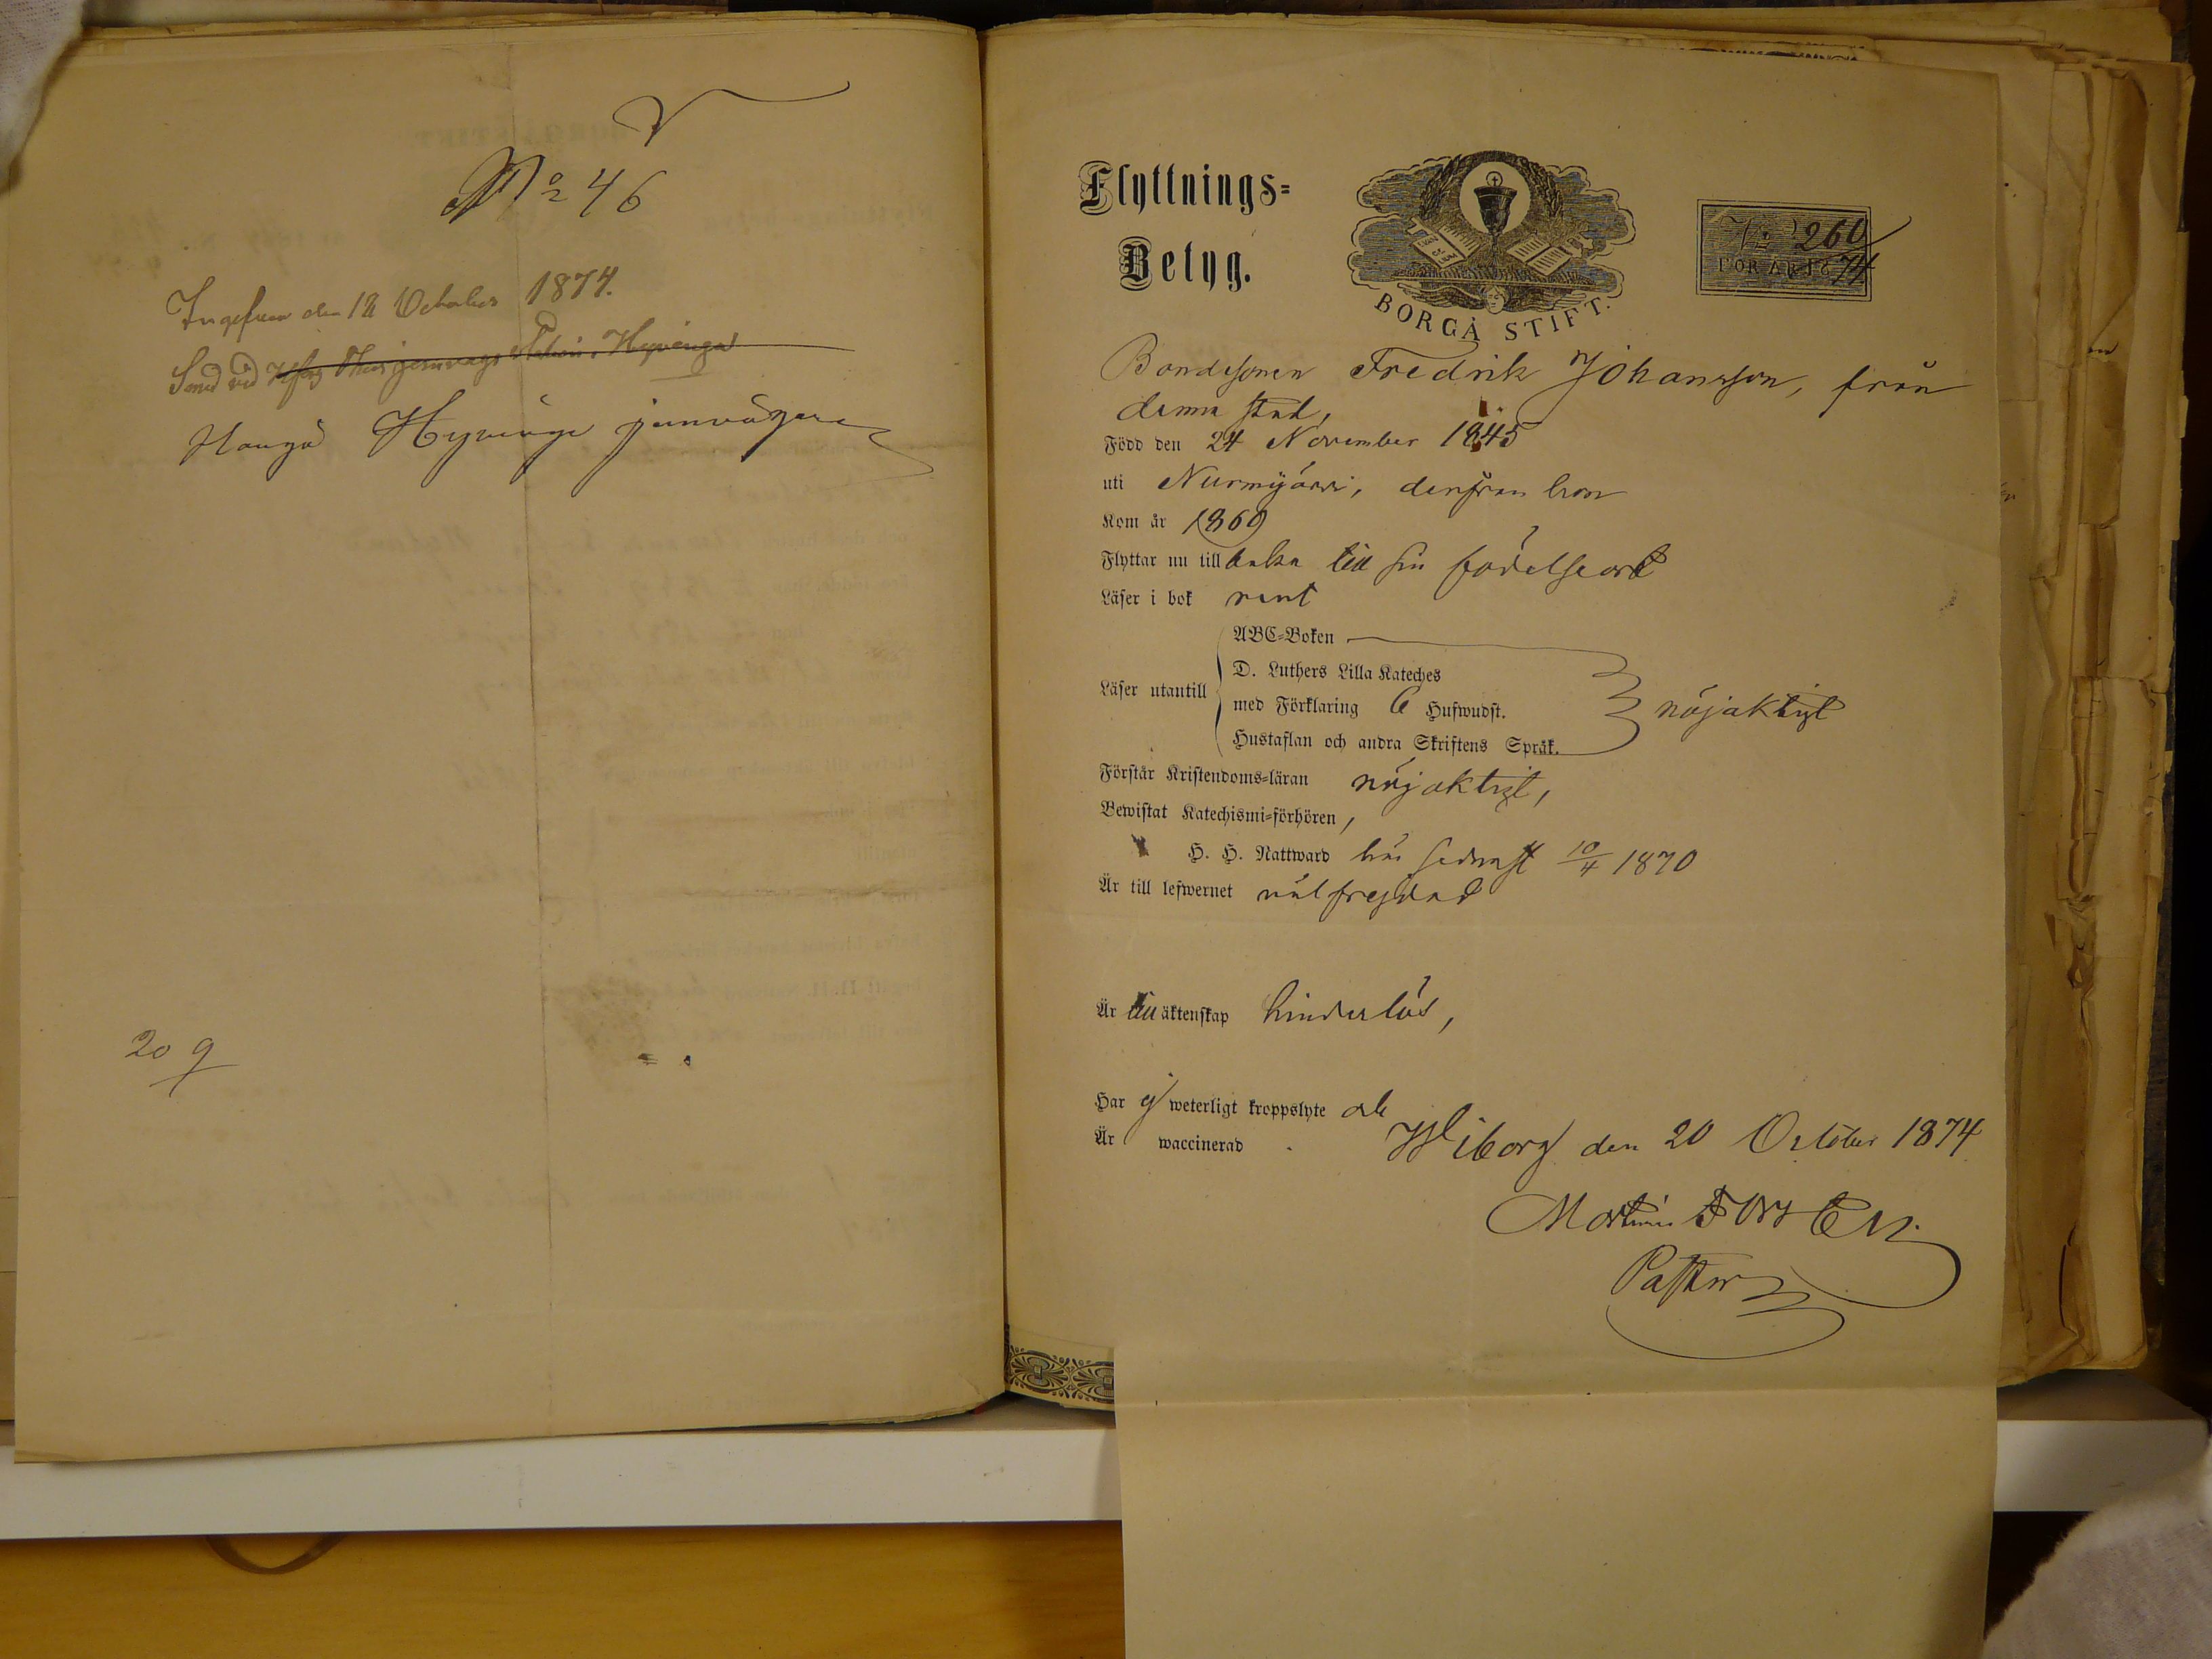 No 46
Ingifven den 12 October 1874.
Smed vid jernvägs station Hyvinge
Hangö Hyvinge jernvägen
20 9
Flyttnings=
Betyg.
BORGÅ STIFT.
No 260
FÖR ÅR 1874
Bondesonen Fredrik Johansson, från
denna stad,
Född den 24 November 1845
uti Nurmijärvi, derifrån han
Kom år 1869
Flyttar nu tillbaka till sin födelseort
Läser i bok rent
ABC=Boken
D. Luthers Lilla Kateches
Läser utantill med Förklaring 6 Hufwudst. nöjaktigt
Hustaflan och andra Skriftens Språk.
Förstår Kristendoms=läran nöjaktigt,
Bewistat Katechismi=förhören,
H. H. Nattward här sednast 10/4 1870
Är till lefwernet välfrejdad
Är till äktenskap hinderlös,
Har ej weterligt kroppslyte och
Är waccinerad.
Wiborg den 20 October 1874
Martin
Pastor